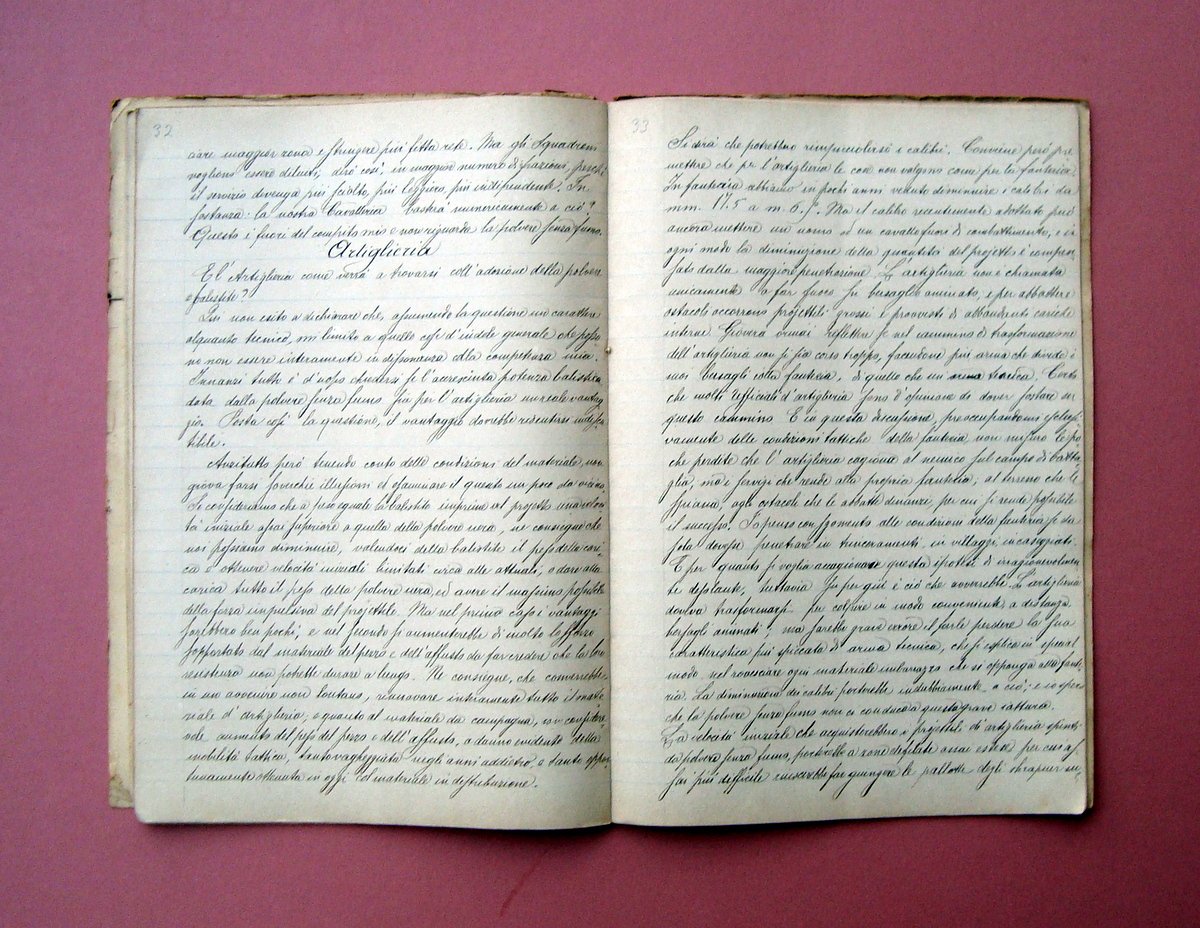 32
ciare maggior zona e stringere più fitta rete. Ma gli Squadroni
vogliono essere diluiti, dirò così, in maggior numero di frazioni, perchè
il servizio divenga più sciolto, più leggiero, più indipendente. In
sostanza: la nostra Cavalleria basterà numericamente a ciò?
Questo è fuori del compito mio e non riguarda la polvere senza fumo.
Artiglieria
E l'Artiglieria come verrà a trovarsi coll'adozione della polvere
e balistite?
Qui non esito a dichiarare che, assumendo la questione un carattere
alquanto tecnico, mi limito a quelle cose d'indole generale che posso
no non essere interamente in dissonanza alla competenza mia.
Innanzi tutto è d'uopo chiedersi se l'accresciuta potenza balistica
data dalla polvere senza fumo sia per l'artiglieria un reale vantag
gio. Posta così la questione, il vantaggio dovrebbe ritenersi indiscu
tibile.
Anzitutto però tenendo conto delle condizioni del materiale, non
giova farsi soverchie illusioni ed esaminare il quesito un poco da vicino.
Se consideriamo che a peso eguale la balistite imprime al projetto una veloci
tà iniziale assai superiore a quella della polvere nera, ne consegue che
noi possiamo diminuire, valendoci della balistite il peso della cari
ca e ottenere velocità iniziali limitati circa alle attuali, o dare alla
carica tutto il peso della polvere nera, ed avere il massimo possibile
della forza impulsiva del projettile. Ma nel primo caso i vantaggi
sarebbero ben pochi, e nel secondo si aumenterebbe di molto lo sforzo
sopportato dal materiale del pezzo e dell'affusto da far credere che la loro
resistenza non potrebbe durare a lungo. Ne consegue, che converrebbe
in un avvenire non lontano, rinnovare interamente tutto il mate
riale d'artiglieria, e quanto al materiale da campagna, con considere
vole aumento del peso del pezzo e dell'affusto, a danno evidente della
mobilità tattica, tanto vagheggiata negli anni addietro, e tanto oppor
tunamente ottenuta in oggi col materiale in distribuzione.
33
Si dirà che potrebbero rimpicciolirsi i calibri. Conviene però pre
mettere che per l'artiglieria le cose non valgono come per la fanteria.
In fanteria abbiamo in pochi anni veduto diminuire i calibri da
mm. 17.5 a m. 6.5. Ma il calibro recentemente adottato può
ancora mettere un uomo ed un cavallo fuori di combattimento, e in
ogni modo la diminuzione della quantità del projetto è compen
sato dalla maggiore penetrazione. L'artiglieria non è chiamata
unicamente a far fuoco su bersaglio animato, e per abbattere
ostacoli occorrono projettili grossi e provvisti di abbondanti cariche
interne. Gioverà ormai riflettere se nel cammino di trasformazione
dell'artiglieria non si sia corso troppo, facendone più arma che divide i
suoi bersagli colla fanteria, di quello che un arma tecnica. Certo
che molti Ufficiali d'artiglieria sono d'opinione di dover sostare su
questo cammino. E io questa discussione, preoccupandomi esclusi
vamente delle condizioni tattiche della fanteria non misuro le po
che perdite che l'artiglieria cagiona al nemico sul campo di batta
glia, ma i servizi che rende alla propria fanteria, al terreno che le
spiana, agli ostacoli che le abbatte dinanzi, per cui si rende possibile
il successo. Io penso con sgomento alle condizioni della fanteria se da
sola dovesse penetrare in trinceramenti, in villaggi, in caseggiati.
E per quanto si voglia accagionare questa ipotesi di irragionevolmen
te desolante, tuttavia giu per giù è ciò che avverrebbe. L'artiglieria
doveva trasformarsi per colpire in modo conveniente, a distanza
bersagli animati, ma sarebbe grave errore il farle perdere la sua
caratteristica più spiccata di arma tecnica, che si esplica in special
modo nel rovesciare ogni materiale imbarazzo che si opponga alla fante
ria. La diminuzione dei calibri porterebbe indubbiamente a ciò; e io spero
che la polvere senza fumo non ci conduca a questa grave iattura.
La velocità iniziale che acquisterebbero i projettili di artiglieria spinti
da polvere senza fumo, porterebbe a zone defilate assai estese per cui as
sai più difficile riuscirebbe far giungere le pallette degli shrapnel su